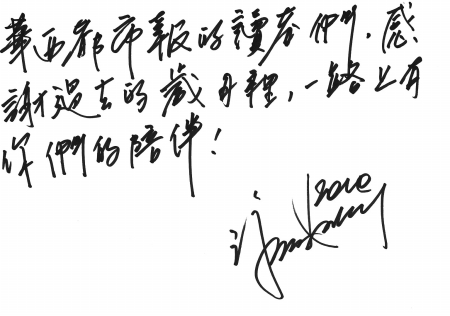 華西都市報的讀者們,感
謝過去的歲月裡,一路上有
你們的陪伴!
2010